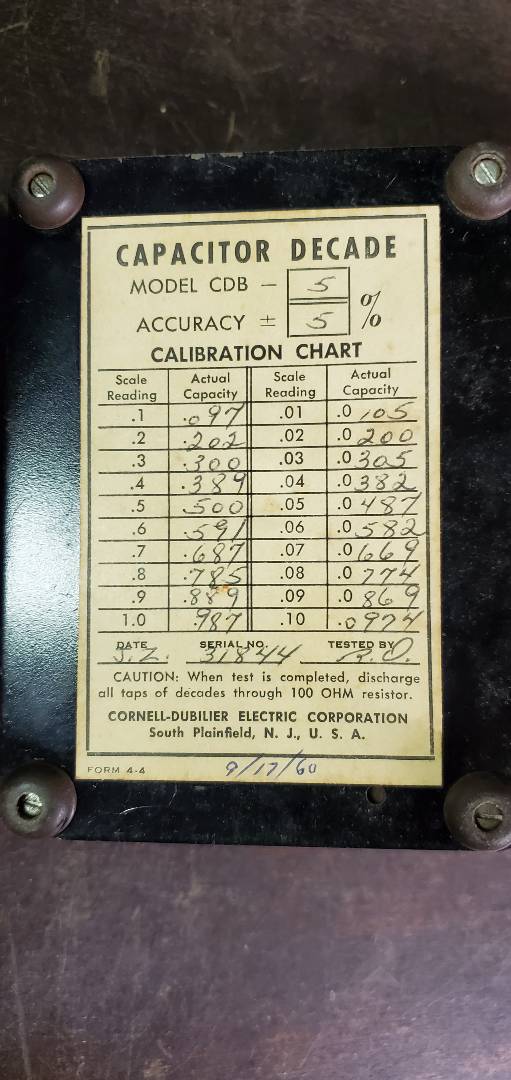 CAPACITOR DECADE
MODEL CDB - 5
ACCURACY ± 5 %
CALIBRATION CHART
Scale Reading Actual Capacity Scale Reading Actual Capacity
.1 .097 .01 .0105
.2 .202 .02 .0200
.3 .300 .03 .0305
.4 .389 .04 .0382
.5 .500 .05 .0487
.6 .591 .06 .0582
.7 .687 .07 .0669
.8 .785 .08 .0774
.9 .889 .09 .0869
1.0 .987 .10 .0974
DATE SERIAL NO. 31844 TESTED BY R.O.
CAUTION: When test is completed, discharge
all taps of decades through 100 OHM resistor.
CORNELL-DUBILIER ELECTRIC CORPORATION
South Plainfield, N. J., U. S. A.
FORM 4-4 9/17/60